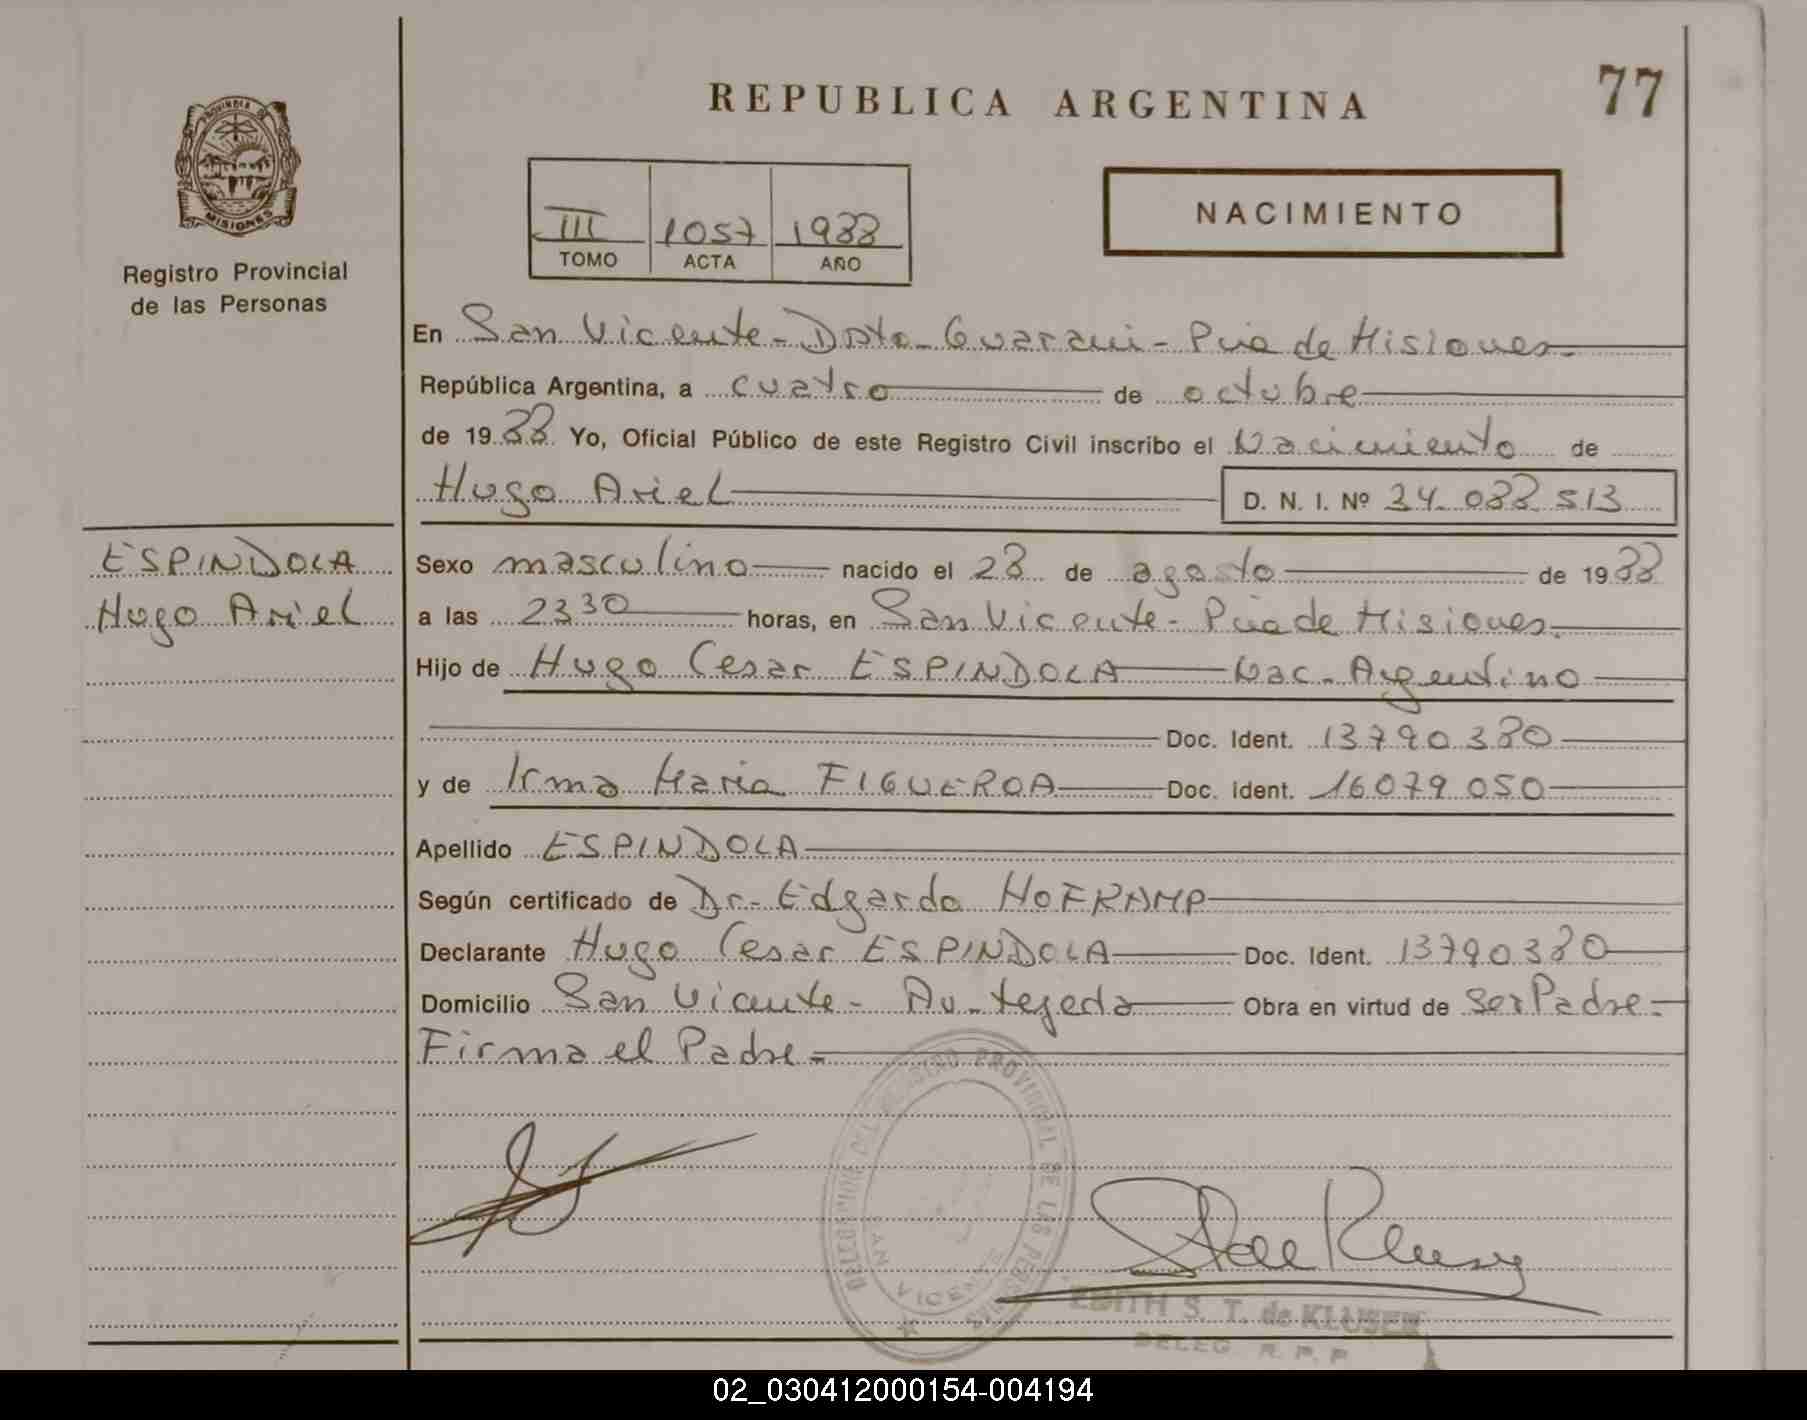 REPUBLICA ARGENTINA
77
PROVINCIA DE
MISIONES
Registro Provincial
de las Personas
III 1057 1988
TOMO ACTA AÑO
NACIMIENTO
En San Vicente - Dpto. Guarani - Pcia de Misiones.
República Argentina, a cuatro de octubre
de 1988 Yo, Oficial Público de este Registro Civil inscribo el Nacimiento de
Hugo Ariel D. N. I. Nº 34.088.513
ESPINDOLA
Hugo Ariel
Sexo masculino nacido el 28 de agosto de 1988
a las 2330 horas, en San Vicente - Pcia de Misiones.
Hijo de Hugo Cesar ESPINDOLA Nac. Argentino
Doc. Ident. 13790380
y de Irma Maria FIGUEROA Doc. Ident. 16079050
Apellido ESPINDOLA
Según certificado de Dr. Edgardo HOFKAMP
Declarante Hugo Cesar ESPINDOLA Doc. Ident. 13790380
Domicilio San Vicente - Av. Tejeda Obra en virtud de ser Padre.-
Firma el Padre.-
DELEGACION DEL REGISTRO PROVINCIAL DE LAS PERSONAS
SAN VICENTE
EDITH S. T. de KLUSER
DELEG. R. P. P.
02_030412000154-004194